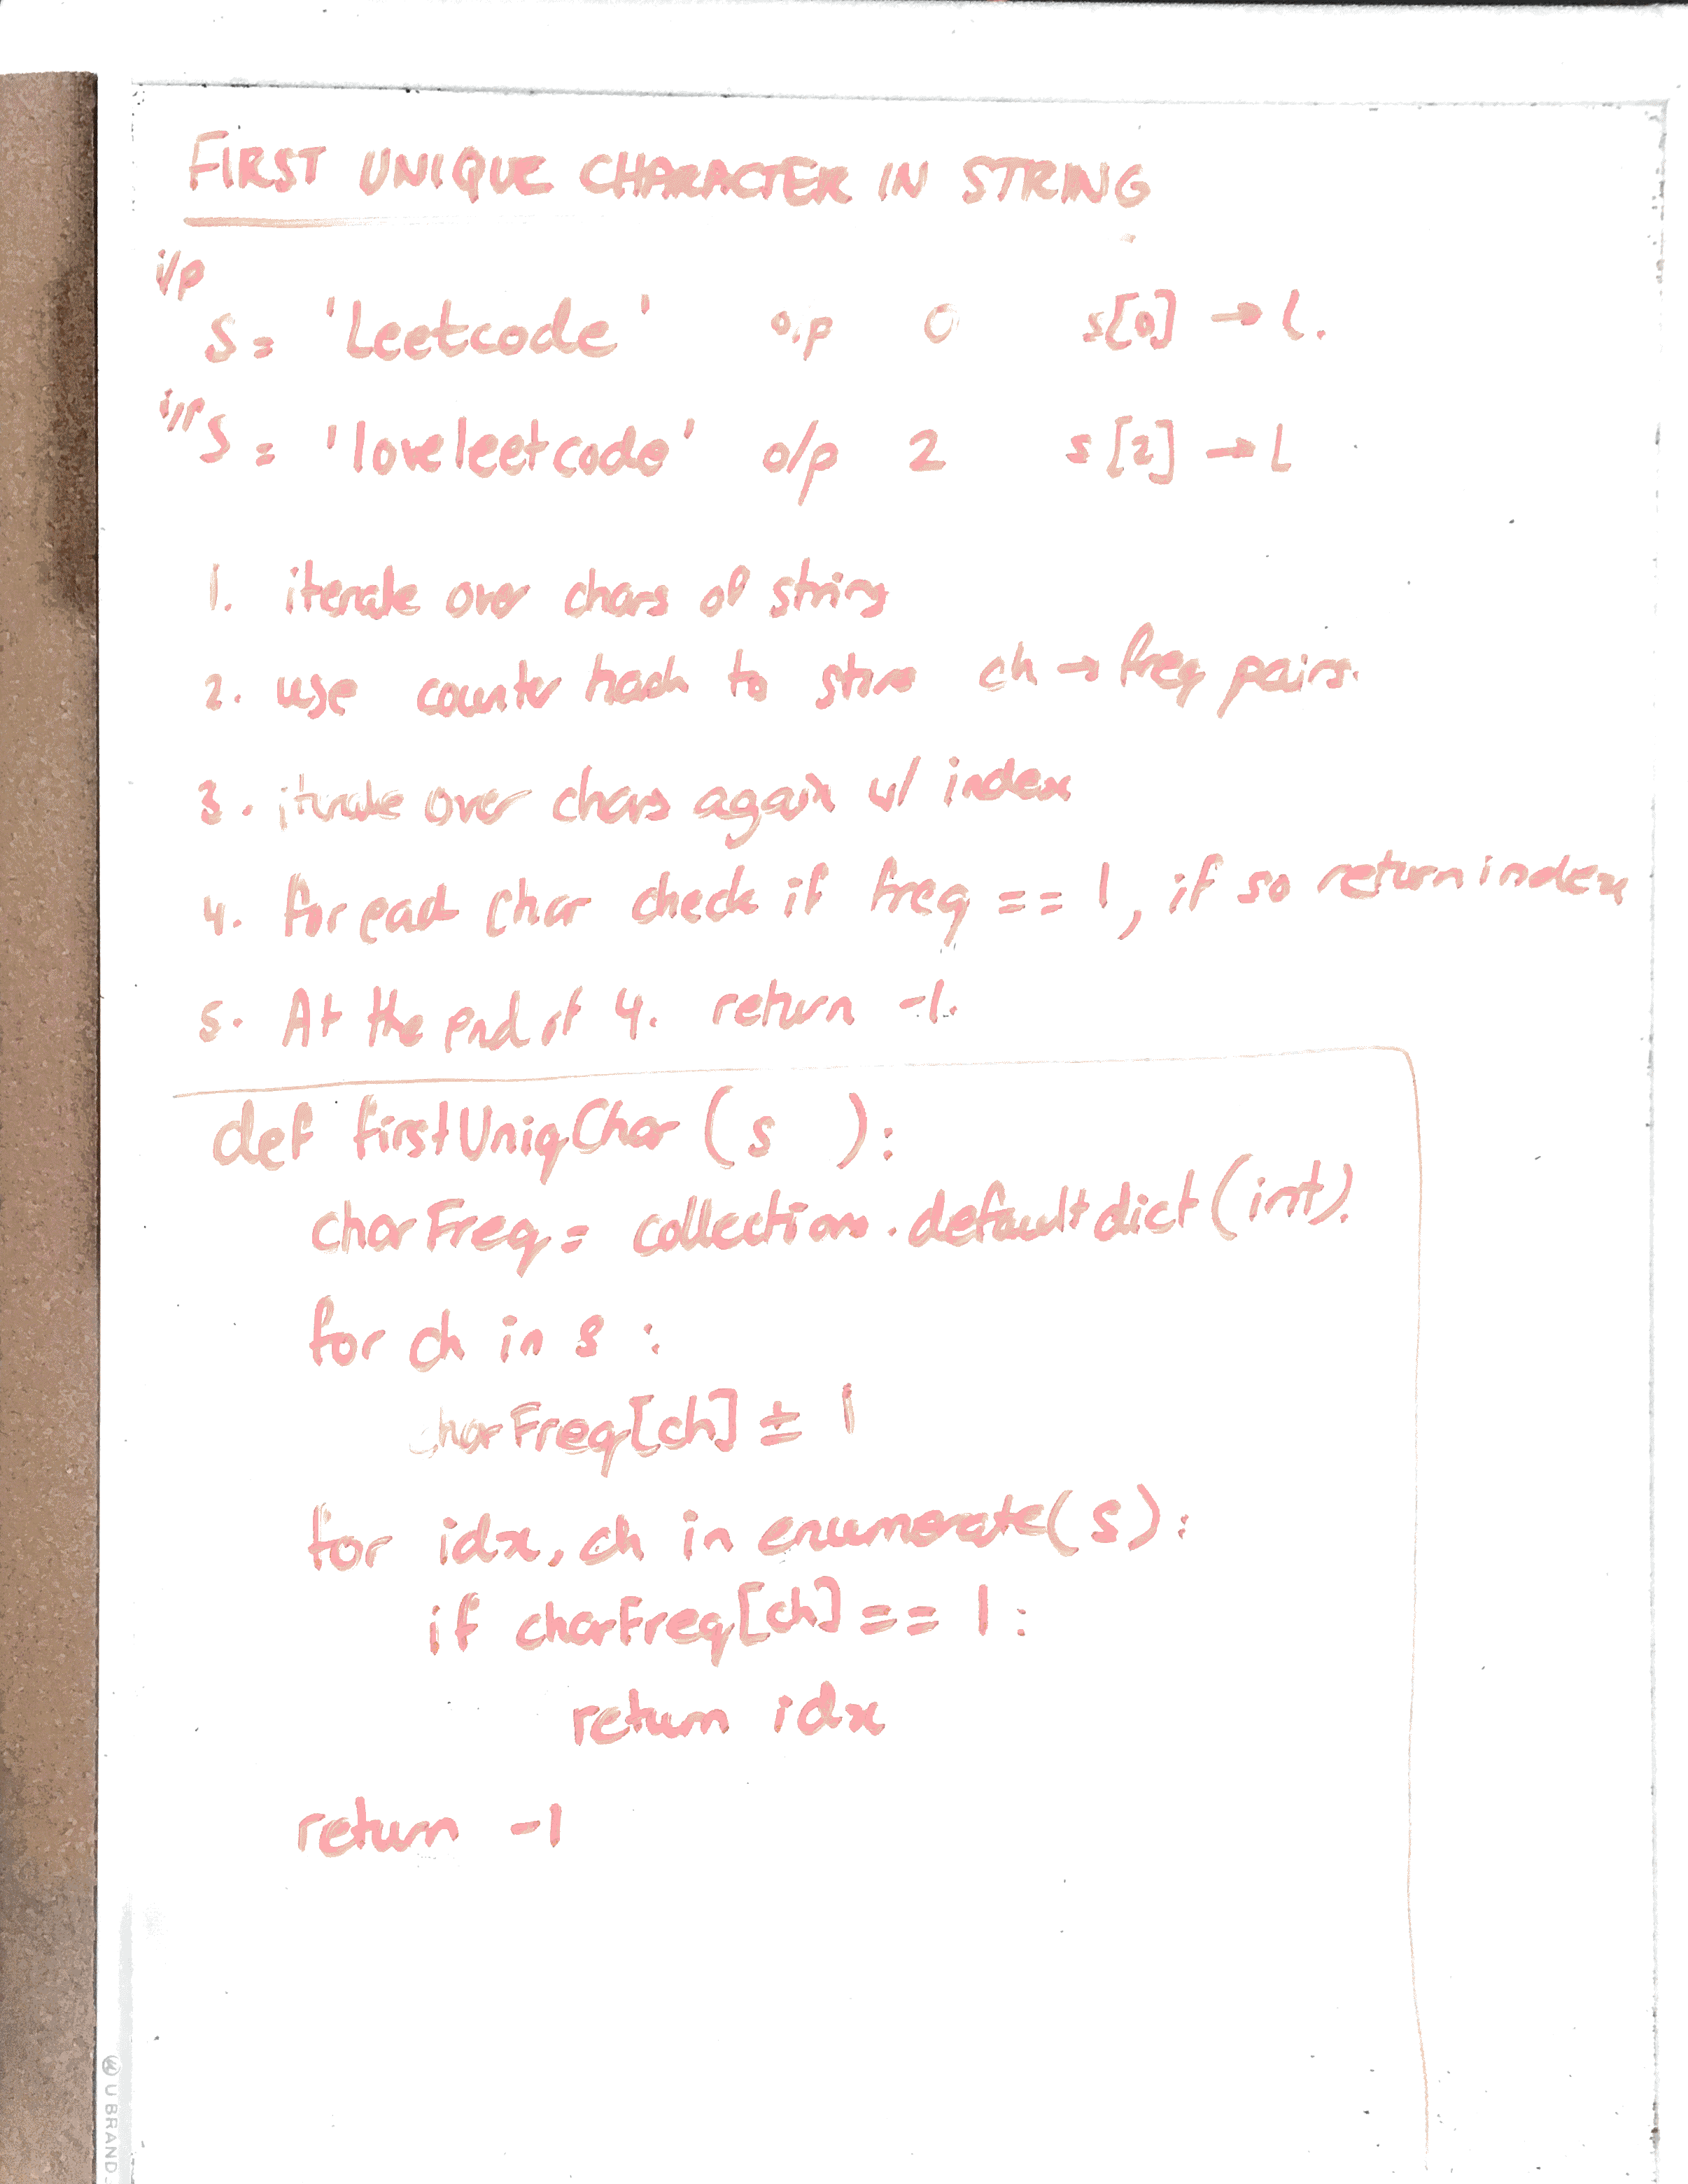 FIRST UNIQUE CHARACTER IN STRING
i/p
s = 'Leetcode' o/p 0 s[0] → l.
i/p
s = 'loveleetcode' o/p 2 s[2] → l
1. iterate over chars of string
2. use counter hash to store ch → freq pairs.
3. iterate over chars again w/ index
4. for each char check if freq == 1, if so return index
5. At the end of 4. return -1.
def firstUniqChar(s ):
charFreq = collections.defaultdict(int).
for ch in s :
charFreq[ch] += 1
for idx, ch in enumerate(s):
if charFreq[ch] == 1:
return idx
return -1
U BRAND